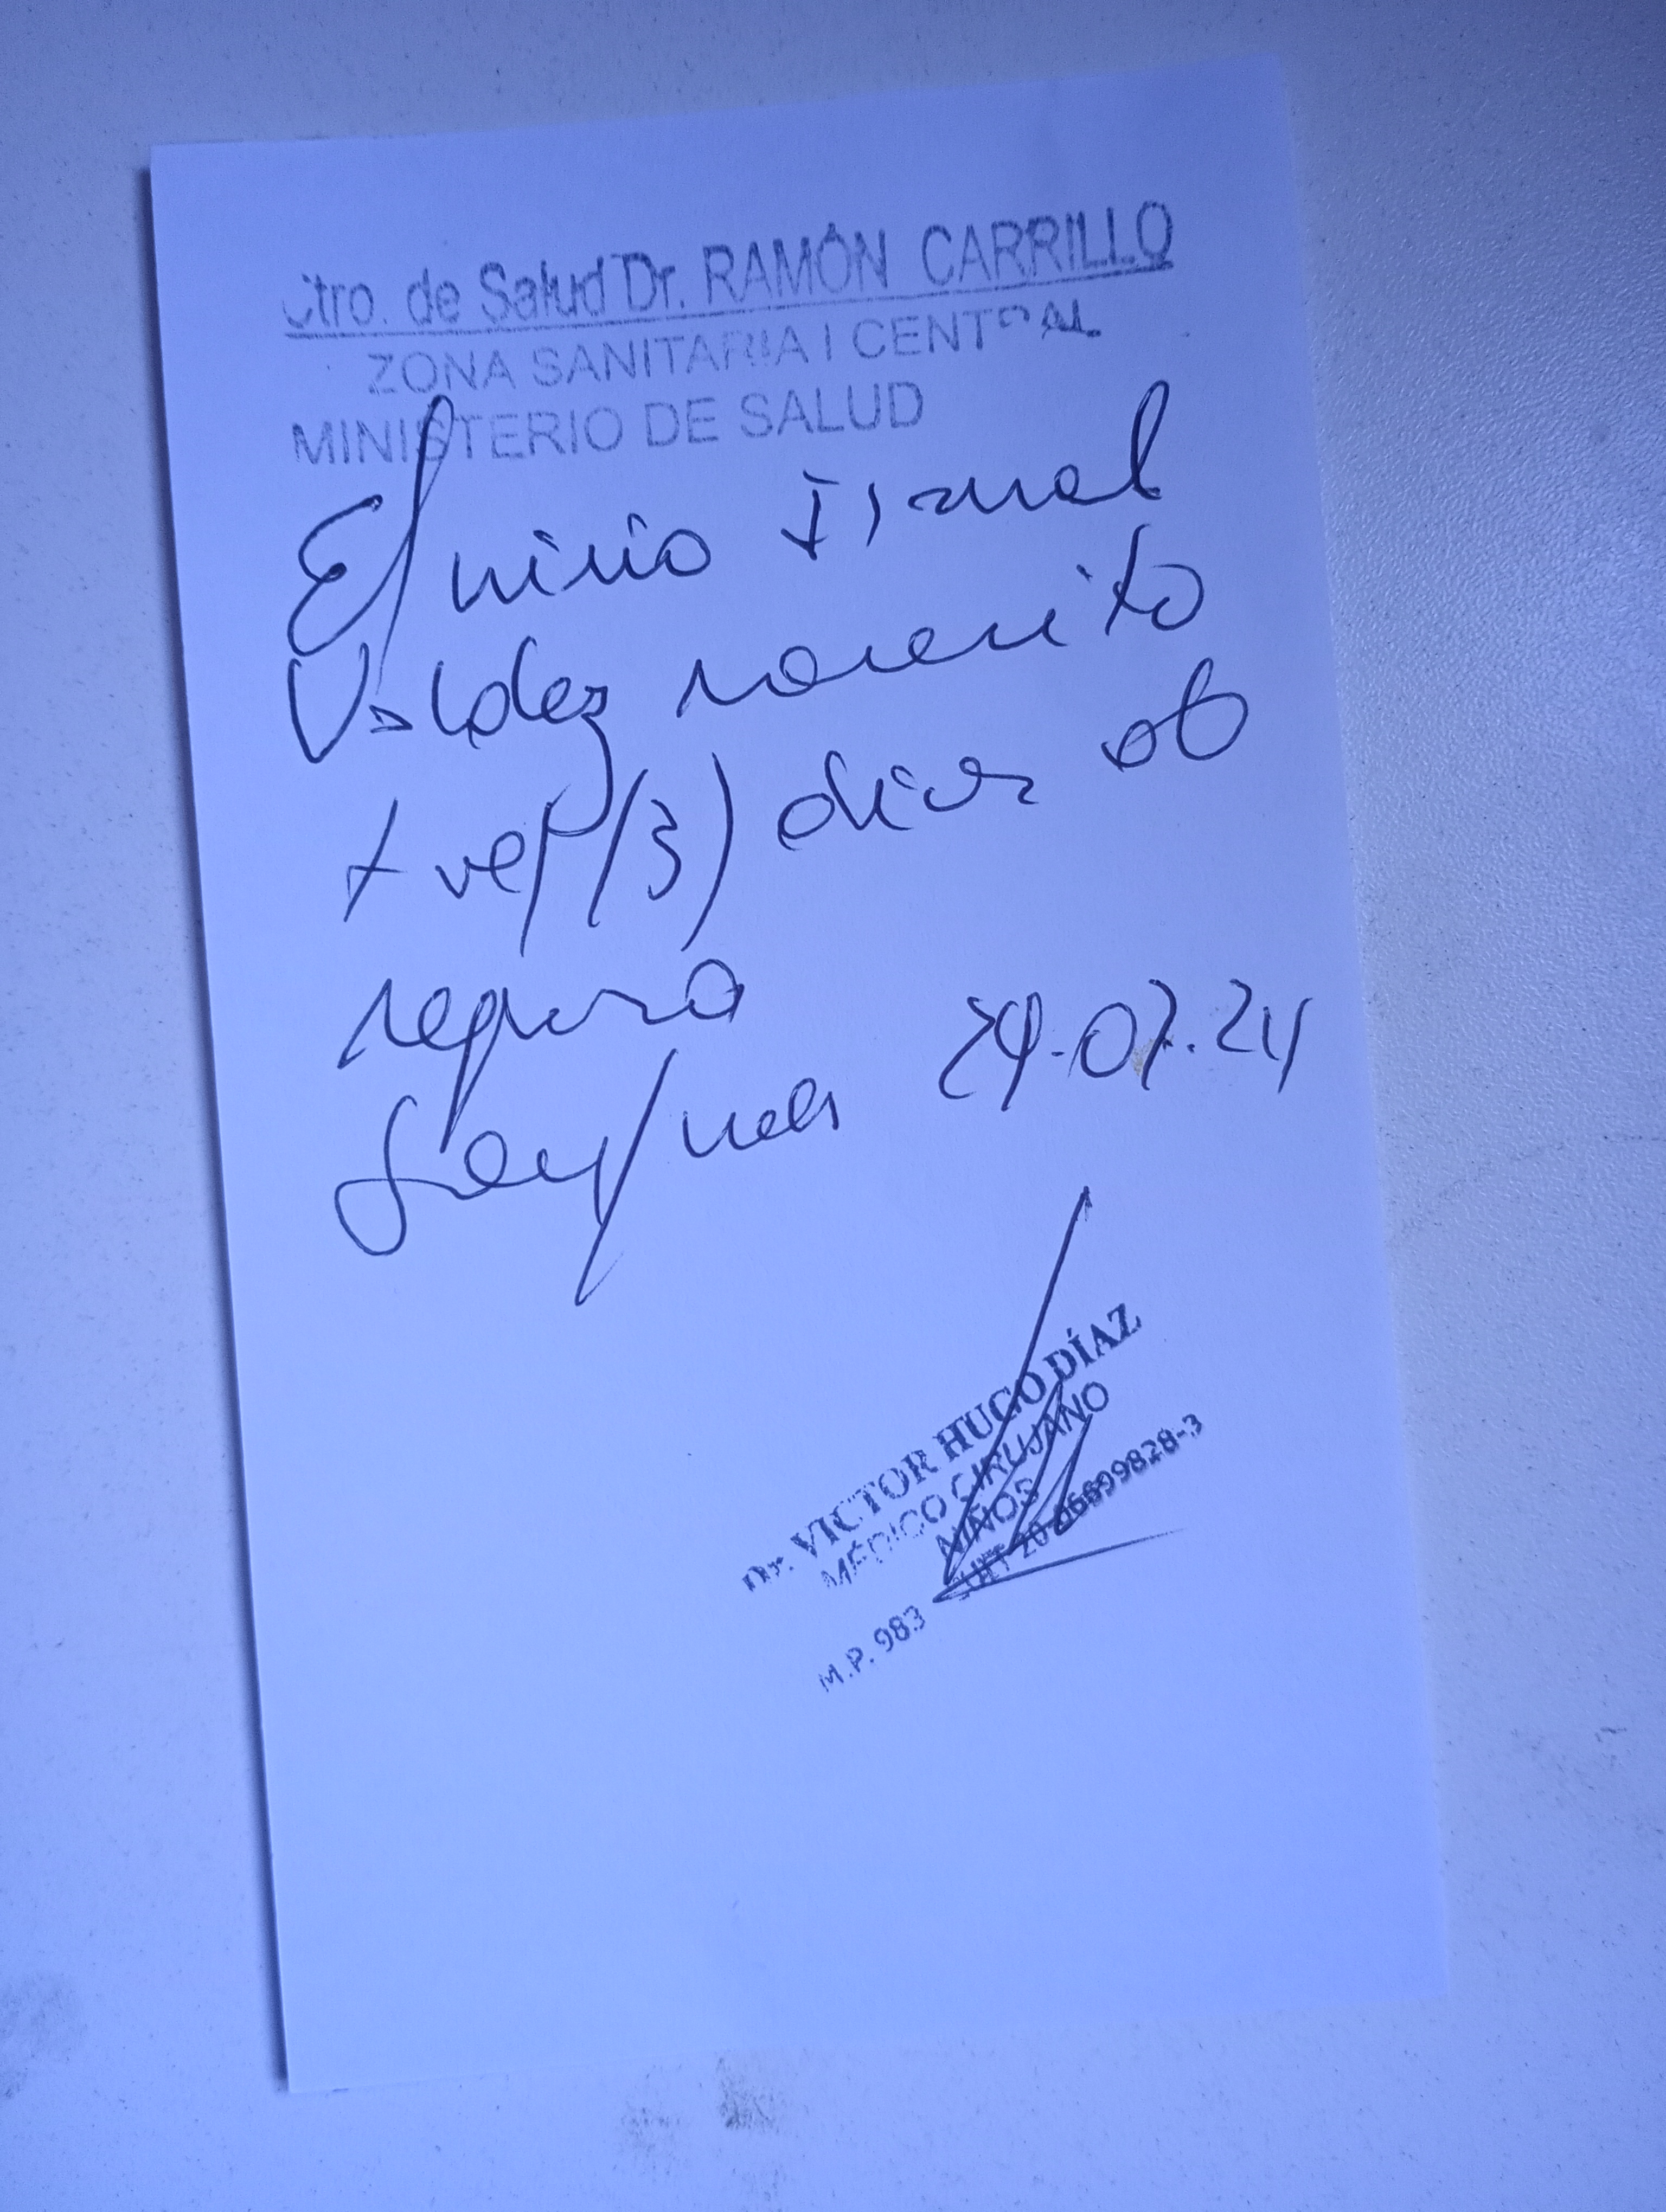 Ctro. de Salud Dr. RAMÓN CARRILLO
ZONA SANITARIA I CENTRAL
MINISTERIO DE SALUD
El niño Ismael
Valdez necesita
tres (3) dias de
reposo
29.07.24
Dr. VICTOR HUGO DÍAZ
MÉDICO CIRUJANO
NIÑOS
M.P. 983